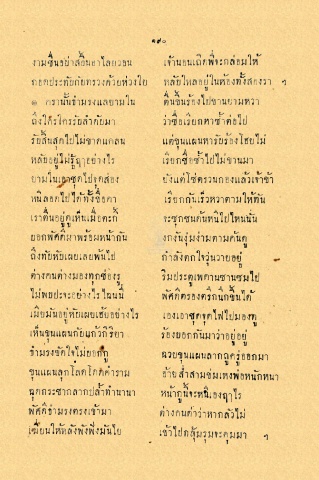 ๑๙๐
งามชื่นอย่าสอื้นอาไลยวอน เจ้านอนเถิดพี่จะกล่อมให้
กอดประทับกับทรวงด้วยห่วงใย หลับใหลอยู่ในห้องทั้งสองรา ฯ
๏ ครานั้นธำมรงแลยามใน ตื่นขึ้นร้องไปขานยามหวา
ถึงใต้รไตรรับลำดับมา ว่าชื่อเรียกหาซ้ำต่อไป
รับสิ้นสุดไปไม่ขาดแคลน แต่ขุนแผนหารับร้องโฮยไม่
หลับอยู่ไม่รู้ฤๅอย่างไร เรียกชื่อซ้ำไปไม่ขานมา
ยามในเอาชุดไปจุดส่อง ยังแต่โซ่ตรวนกองแล้วเจ้าข้า
หนีลอดไปได้ทั้งชื่อคา เรียกกันเร็วหวาตามให้ทัน
เราตื่นอยู่ดูเห็นเมื่อตะกี้ จะซุกซนค้นหนีไปไหนนั่น
ยอกพัศดีมาพร้อมหน้ากัน งกงันงุ่มง่ามตามค้นดู
ถึงทับหับเผยเลยพ้นไป กำลังตกใจวุ่นวายอยู่
ต่างคนต่างมองตุกช่องรู ริมประตูเพดานซานซมไป
ไม่พบปะจะอย่างไรไฉนนี่ พัศดีตรองตรึกนึกขึ้นได้
เมื่อมันอยู่หับเผยเฮยอย่างไร เอาเอาชุดจุดไฟไปมองดู
เห็นขุนแผนกับแก้วกิริยา ร้องบอกกันมาว่าอยู่อยู่
ธำมรงขัดใจไม่ยอกกู ฉวยขุนแผนลากถูกู่รู่ออกมา
ขุนแผนลุกโลดโดดคำราม อ้ายส่ำสามซ่มเหงพ่อหนักหนา
ฉุดกระชากลากปล้ำทำนานา หน้ากูนี้จะหนีเองฤๅไร
พัศดีธำมรงตรงเข้ามา ต่างคนด่าว่าหากลัวไม่
เฆี่ยนให้หลังพังพึ่งมันไย เข้าไปกลุ้มรุมจะคุมมา ฯ